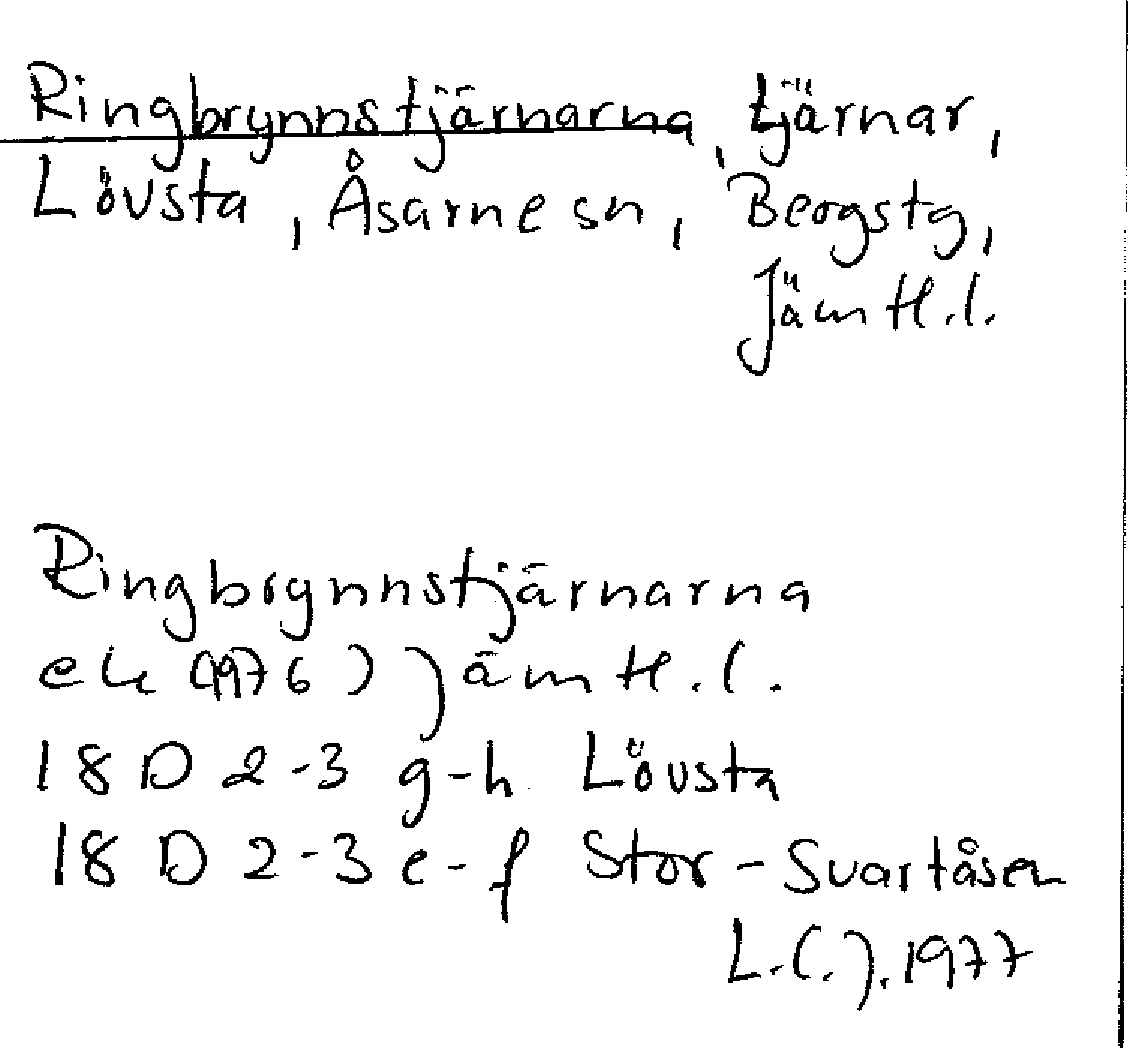 Ringbrynnstjärnarna, tjärnar,
Lövsta, Åsarne sn, Bergstg,
Jämtl.l.
Ringbrynnstjärnarna
ek (1976) Jämtl.l.
18 D 2-3 g-h Lövsta
18 D 2-3 e-f Stor-Svartåsen
1977